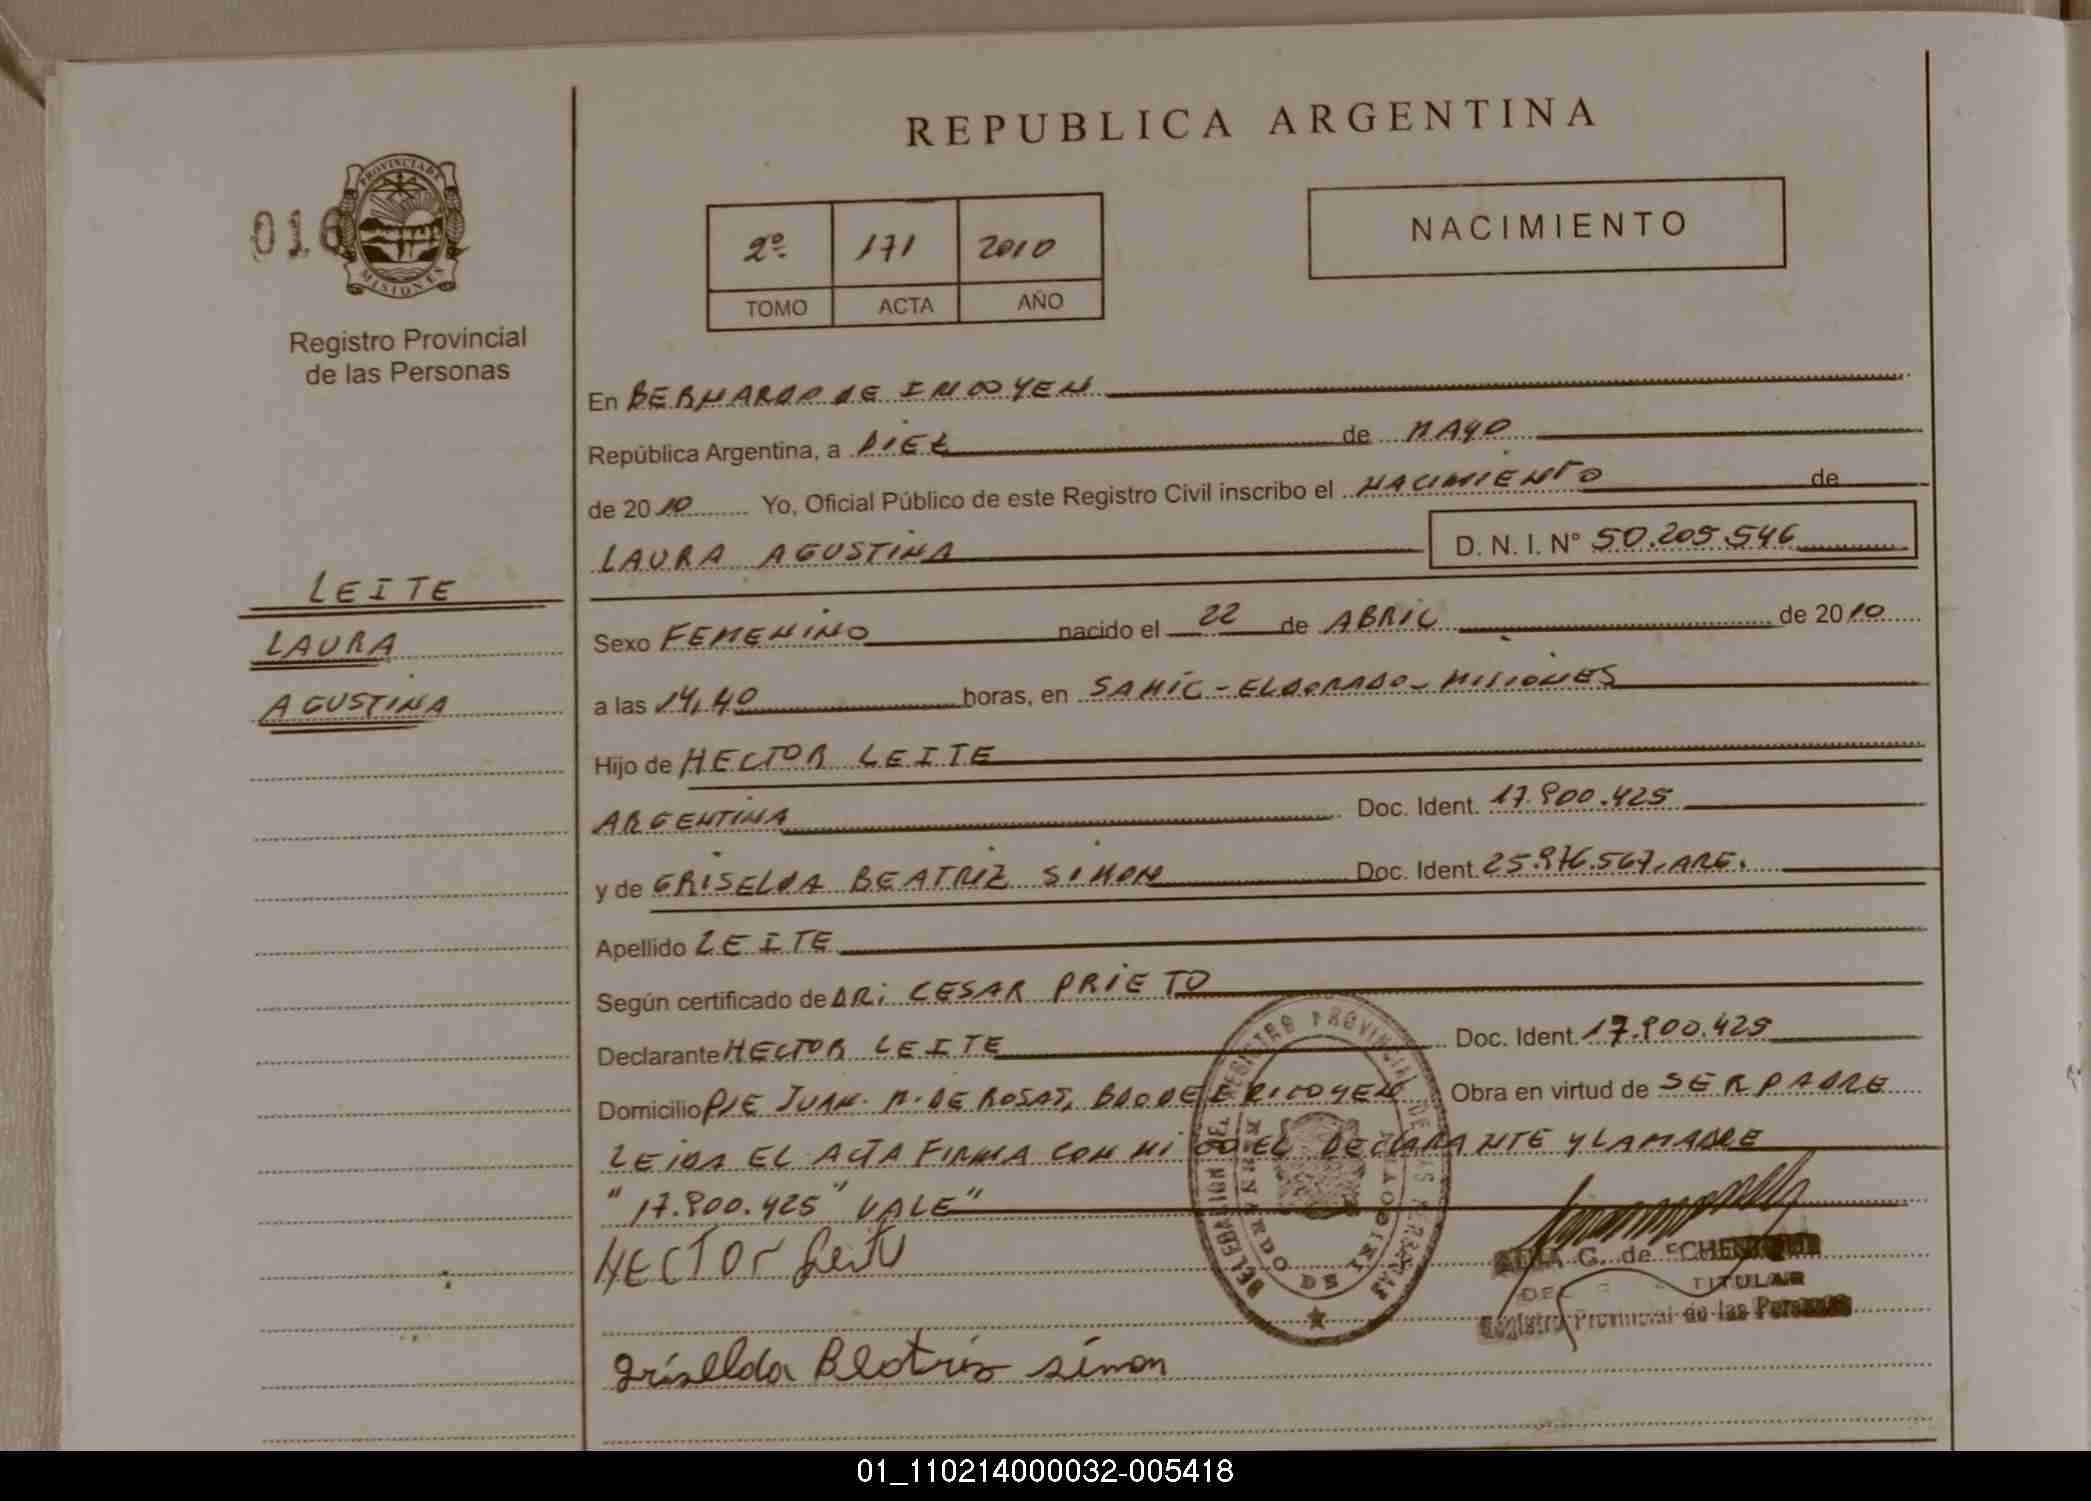 REPUBLICA ARGENTINA
PROVINCIA DE
MISIONES
016
Registro Provincial
de las Personas
2º 171 2010
TOMO ACTA AÑO
NACIMIENTO
En BERNARDO DE IRIGOYEN
República Argentina, a DIEZ de MAYO
de 2010 Yo, Oficial Público de este Registro Civil inscribo el NACIMIENTO de
LAURA AGUSTINA D. N. I. N° 50.205.546
LEITE
LAURA
AGUSTINA
Sexo FEMENINO nacido el 22 de ABRIL de 2010
a las 14,40 horas, en SAMIC - ELDORADO - MISIONES
Hijo de HECTOR LEITE
ARGENTINA Doc. Ident. 17.900.425
y de GRISELDA BEATRIZ SIMON Doc. Ident. 25.976.567, ARG.
Apellido LEITE
Según certificado de DR: CESAR PRIETO
Declarante HECTOR LEITE Doc. Ident. 17.900.425
Domicilio PJE JUAN M. DE ROSAS, BDO DE IRIGOYEN Obra en virtud de SER PADRE
LEIDA EL ACTA FIRMA CON MIGO EL DECLARANTE Y LA MADRE
"17.900.425" VALE"
HECTOR Leite
DELEGACION DEL REGISTRO PROVINCIAL DE LAS PERSONAS
BERNARDO DE IRIGOYEN
G. de
TITULAR
Registro Provincial de las Personas
Griselda Beatris simon
01_110214000032-005418